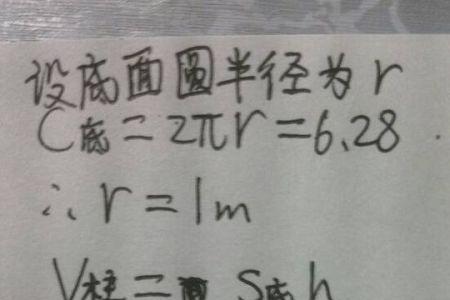 设底面圆半径为r
C底=2πr=6.28
∴r=1m
V柱=S底h